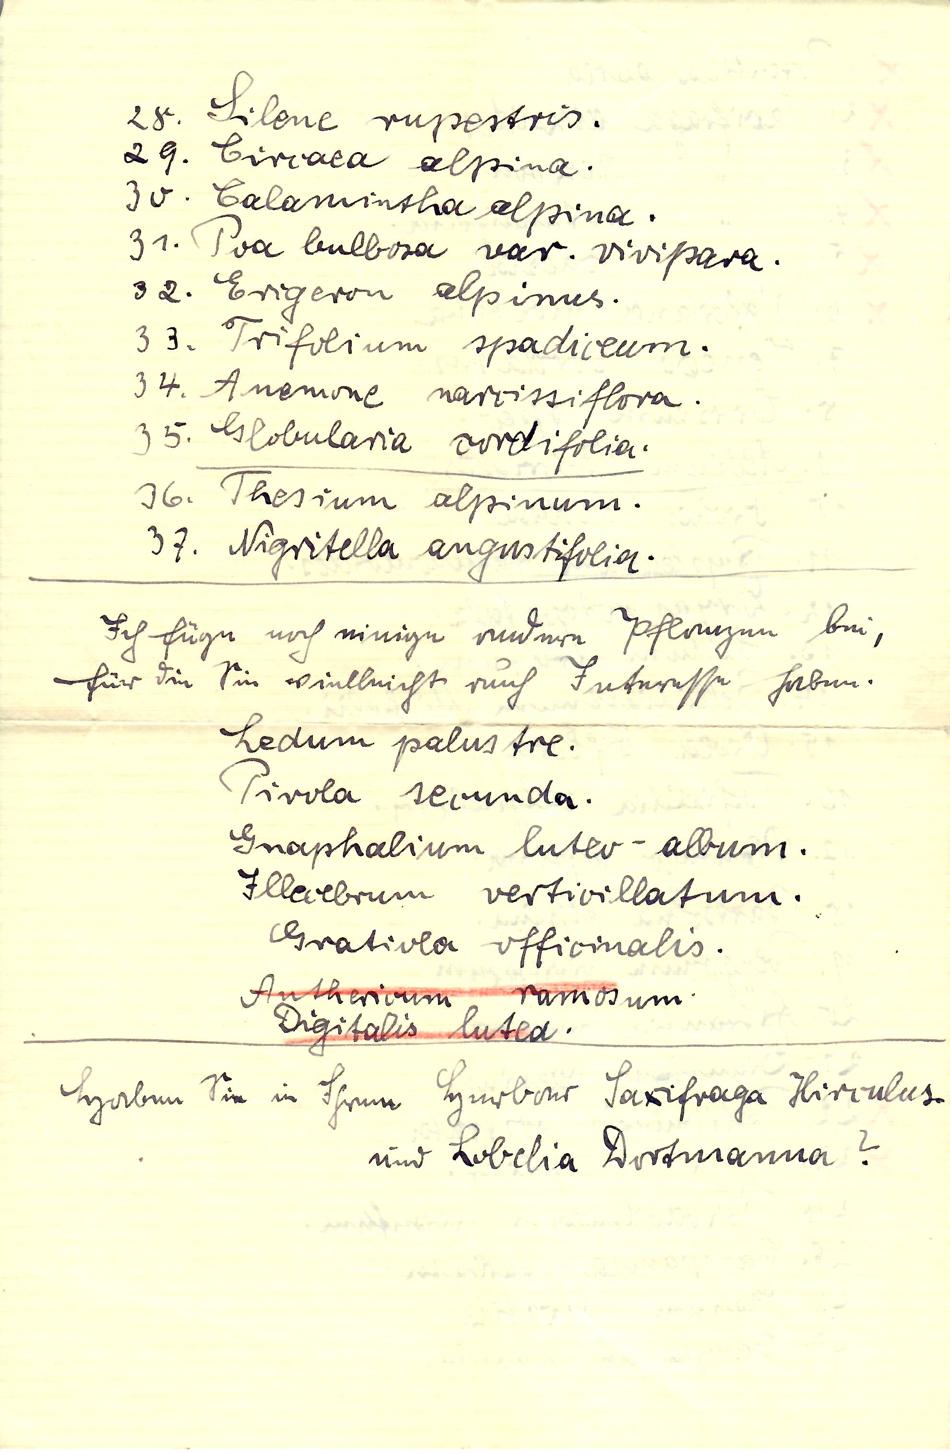 28. Silene rupestris.
29. Circaea alpina.
30. Calamintha alpina.
31. Poa bulbosa var. vivipara.
32. Erigeron alpinus.
33. Trifolium spadiceum.
34. Anemone narcissiflora.
35. Globularia cordifolia.
36. Thesium alpinum.
37. Nigritella angustifolia.
Ich füge noch einige andere Pflanzen bei,
für die Sie vielleicht auch Interesse haben.
Ledum palustre.
Pirola secunda.
Gnaphalium luteo-album.
Illecebrum verticillatum.
Gratiola officinalis.
Anthericum ramosum.
Digitalis lutea.
Haben Sie in Ihrem Herbar Saxifraga Hirculus
und Lobelia Dortmanna?